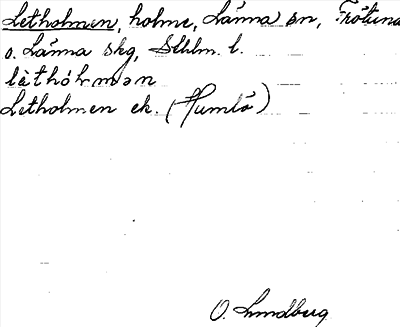 Letholmen, holme, Länna sn, Frötuna
o. Länna skg, Sthlm. l.
lèthól·mən
Letholmen ek. (Humlö)
O. Lundberg